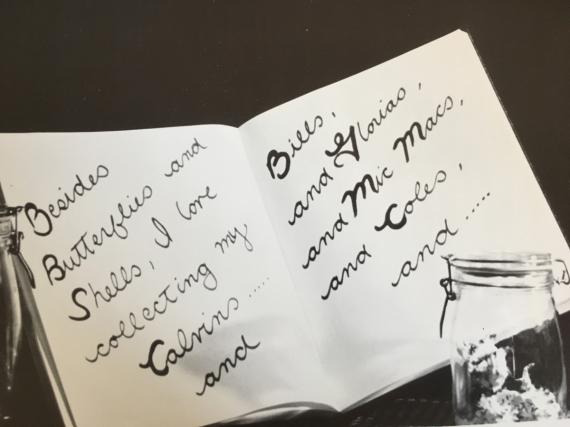 Besides
Butterflies and
Shells, I love
collecting my
Calvins .....
and
Bills,
and Glorias,
and Mic Macs,
and Coles,
and .....